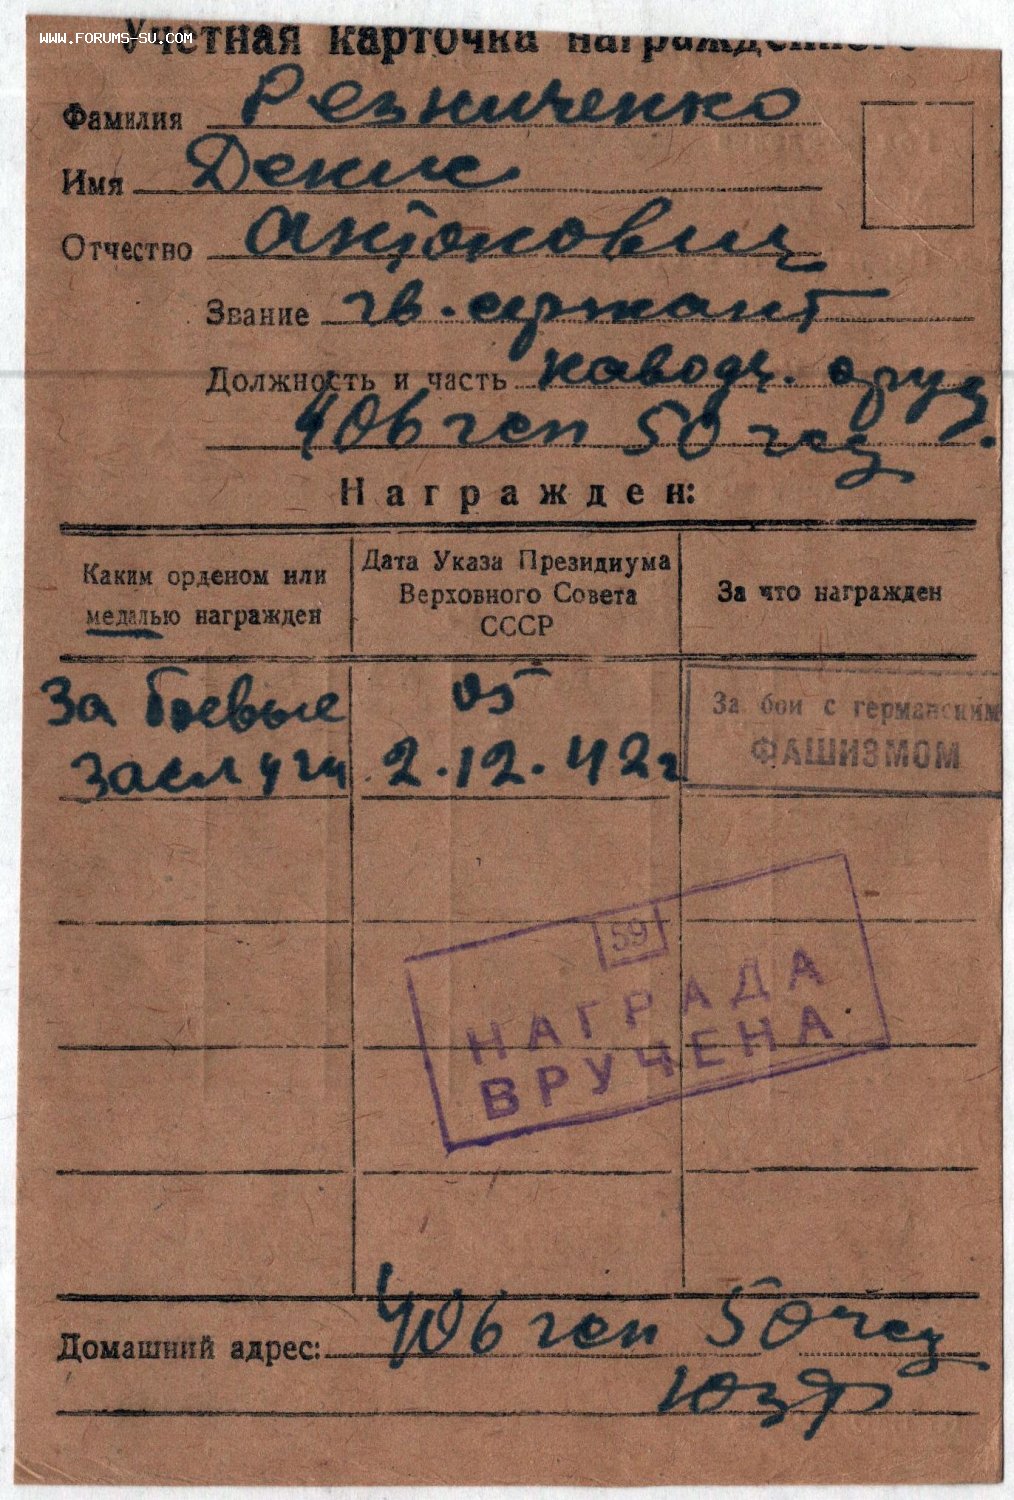 WWW.FORUMS-SU.COM
Учетная карточка награжденного
Фамилия Резниченко
Имя Денис
Отчество Антонович
Звание гв. сержант
Должность и часть наводч. оруд.
406 гсп 50 гсд
Награжден:
Каким орденом или медалью награжден
Дата Указа Президиума Верховного Совета СССР
За что награжден
За боевые заслуги
05
2.12.42г
За бои с германским
ФАШИЗМОМ
59
НАГРАДА
ВРУЧЕНА
Домашний адрес: 406 гсп 50 гсд
ЮЗФ